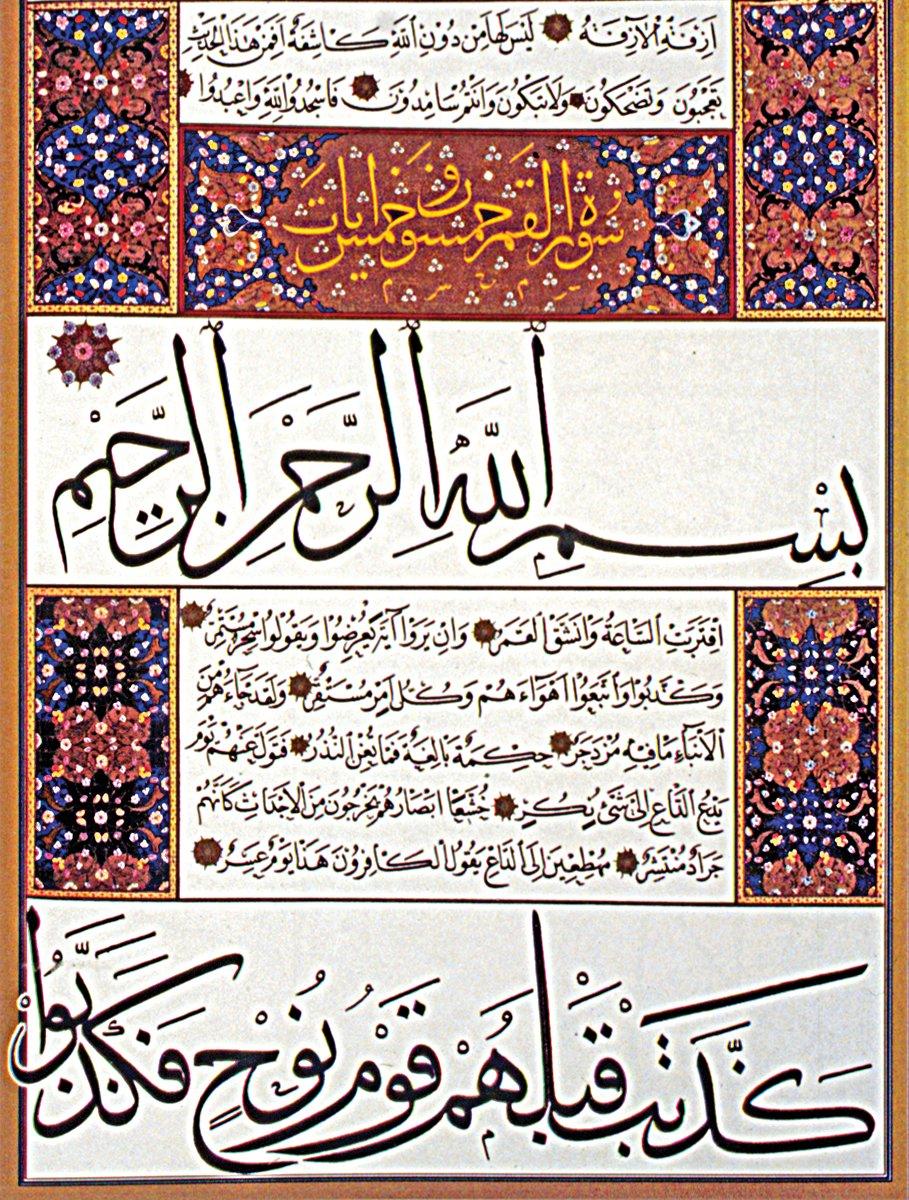 اَزِفَةِ الْاٰزِفَةُ لَيْسَ لَهَا مِنْ دُوْنِ اللّٰهِ كَاشِفَةٌ اَفَمِنْ هٰذَا الْحَدِيْثِ
تَعْجَبُوْنَ وَتَضْحَكُوْنَ وَلَا تَبْكُوْنَ وَاَنْتُمْ سَامِدُوْنَ فَاسْجُدُوْا لِلّٰهِ وَاعْبُدُوْا
سُورَةُ الْقَمَرِ خَمْسٌ وَخَمْسِينَ آيَاتٍ
بِسْمِ اللّٰهِ الرَّحْمٰنِ الرَّحِيْمِ
اقْتَرَبَتِ السَّاعَةُ وَانْشَقَّ الْقَمَرُ وَاِنْ يَرَوْا اٰيَةً يُعْرِضُوْا وَيَقُوْلُوْا سِحْرٌ مُسْتَمِرٌّ
وَكَذَّبُوْا وَاتَّبَعُوْا اَهْوَاءَ هُمْ وَكُلُّ اَمْرٍ مُسْتَقِرٌّ وَلَقَدْ جَاءَهُمْ مِنَ
الْاَنْبَاءِ مَا فِيْهِ مُزْدَجَرٌ حِكْمَةٌ بَالِغَةٌ فَمَا تُغْنِ النُّذُرُ فَتَوَلَّ عَنْهُمْ يَوْمَ
يَدْعُ الدَّاعِ اِلٰى شَيْءٍ نُكُرٍ خُشَّعًا اَبْصَارُهُمْ يَخْرُجُوْنَ مِنَ الْاَجْدَاثِ كَاَنَّهُمْ
جَرَادٌ مُنْتَشِرٌ مُهْطِعِيْنَ اِلَى الدَّاعِ يَقُوْلُ الْكَافِرُوْنَ هٰذَا يَوْمٌ عَسِرٌ
كَذَّبَتْ قَبْلَهُمْ قَوْمُ نُوْحٍ فَكَذَّبُوْا